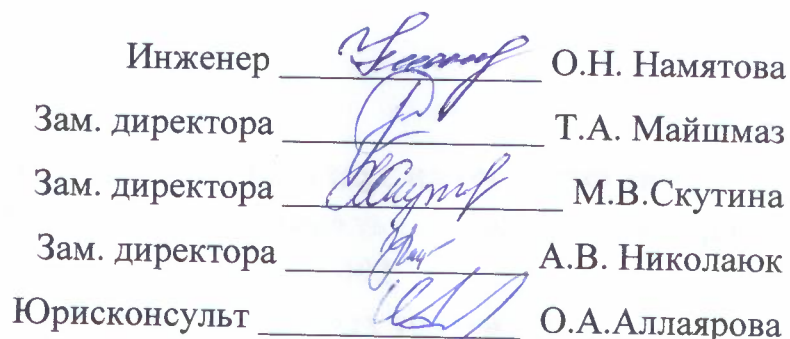 Инженер ____________ О.Н. Намятова
Зам. директора ____________ Т.А. Майшмаз
Зам. директора ____________ М.В.Скутина
Зам. директора ____________ А.В. Николаюк
Юрисконсульт ____________ О.А.Аллаярова